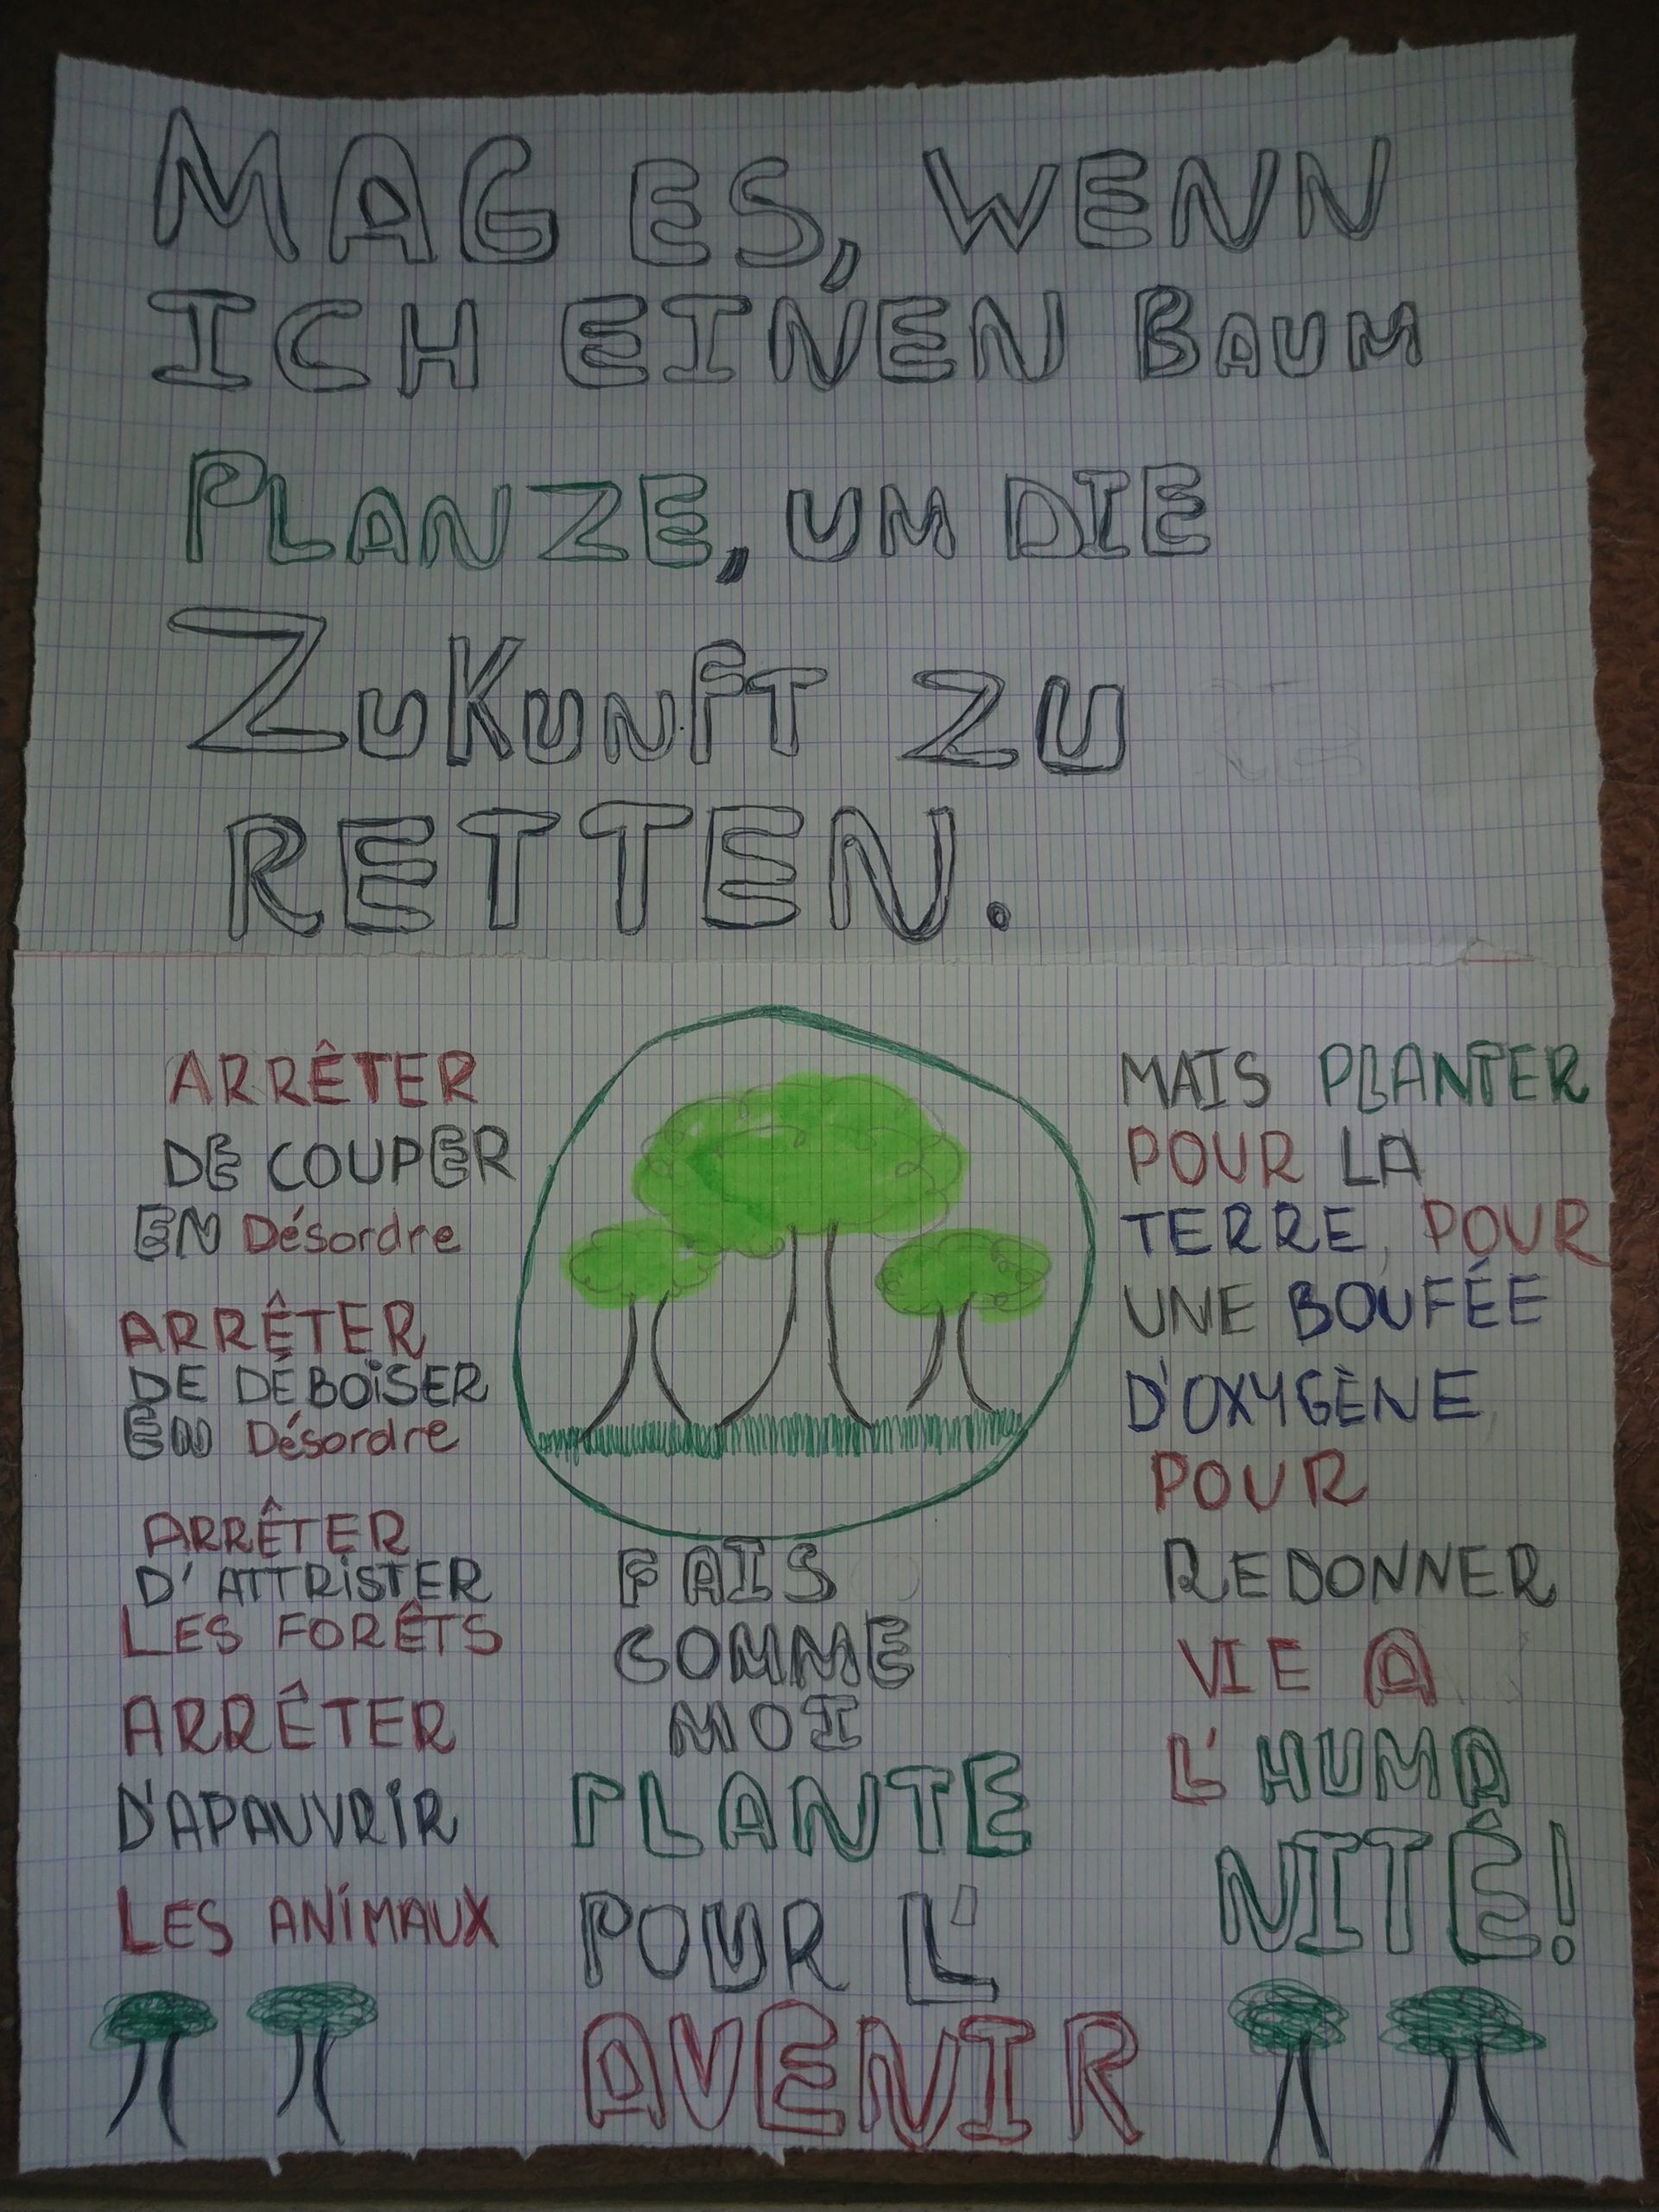 MAG ES, WENN
ICH EINEN BAUM
PLANZE, UM DIE
ZUKUNFT ZU
RETTEN.
ARRÊTER
DE COUPER
EN Désordre
ARRÊTER
DE DÉBOISER
EN Désordre
ARRÊTER
D'ATTRISTER
LES FORÊTS
ARRÊTER
D'APAUVRIR
LES ANIMAUX
FAIS
COMME
MOI
PLANTE
POUR L'
AVENIR
MAIS PLANTER
POUR LA
TERRE, POUR
UNE BOUFÉE
D'OXYGÈNE
POUR
REDONNER
VIE A
L'HUMA
NITÉ!